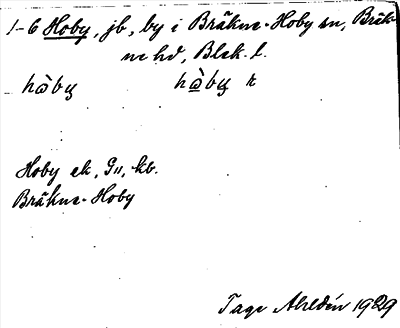 1-6 Hoby, jb, by i Bräkne-Hoby sn, Bräk-
ne hd, Blek. l.
hò̀by hò̀by k
Hoby ek, G11, kb.
Bräkne-Hoby
Tage Ahldén 1929